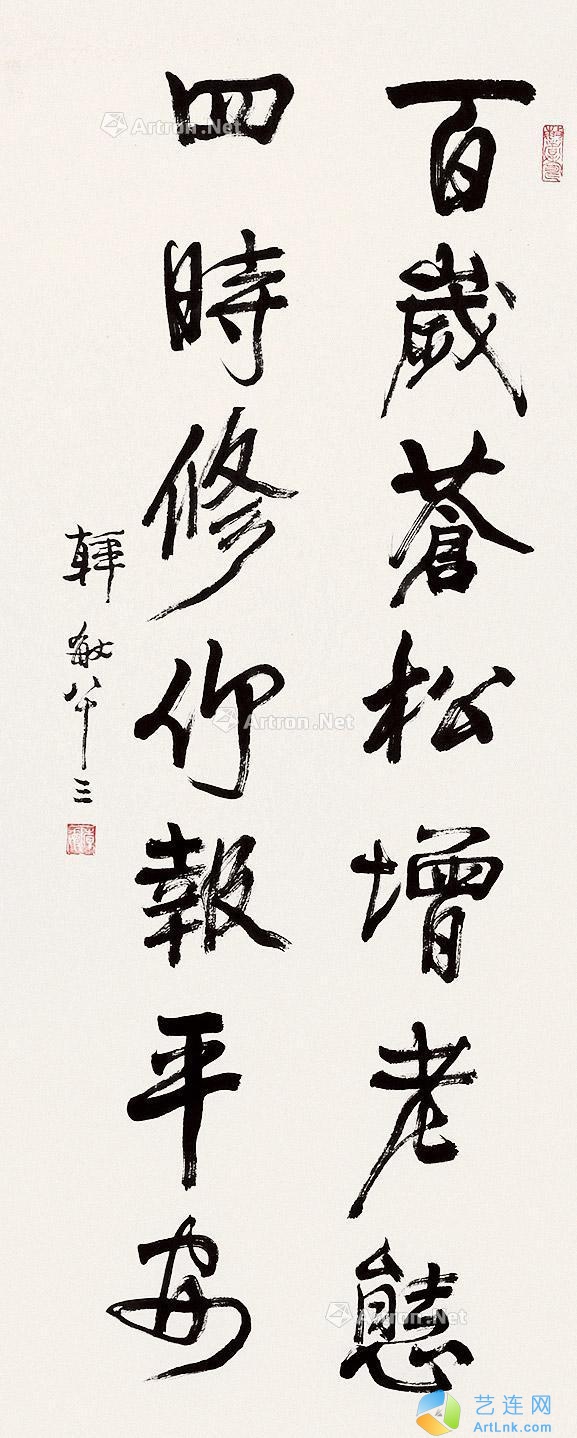 百歲蒼松增老態
四時修竹報平安
韓敏八十三
Artron.Net
Artron.Net
Artron.Net
艺连网
ArtLnk.com